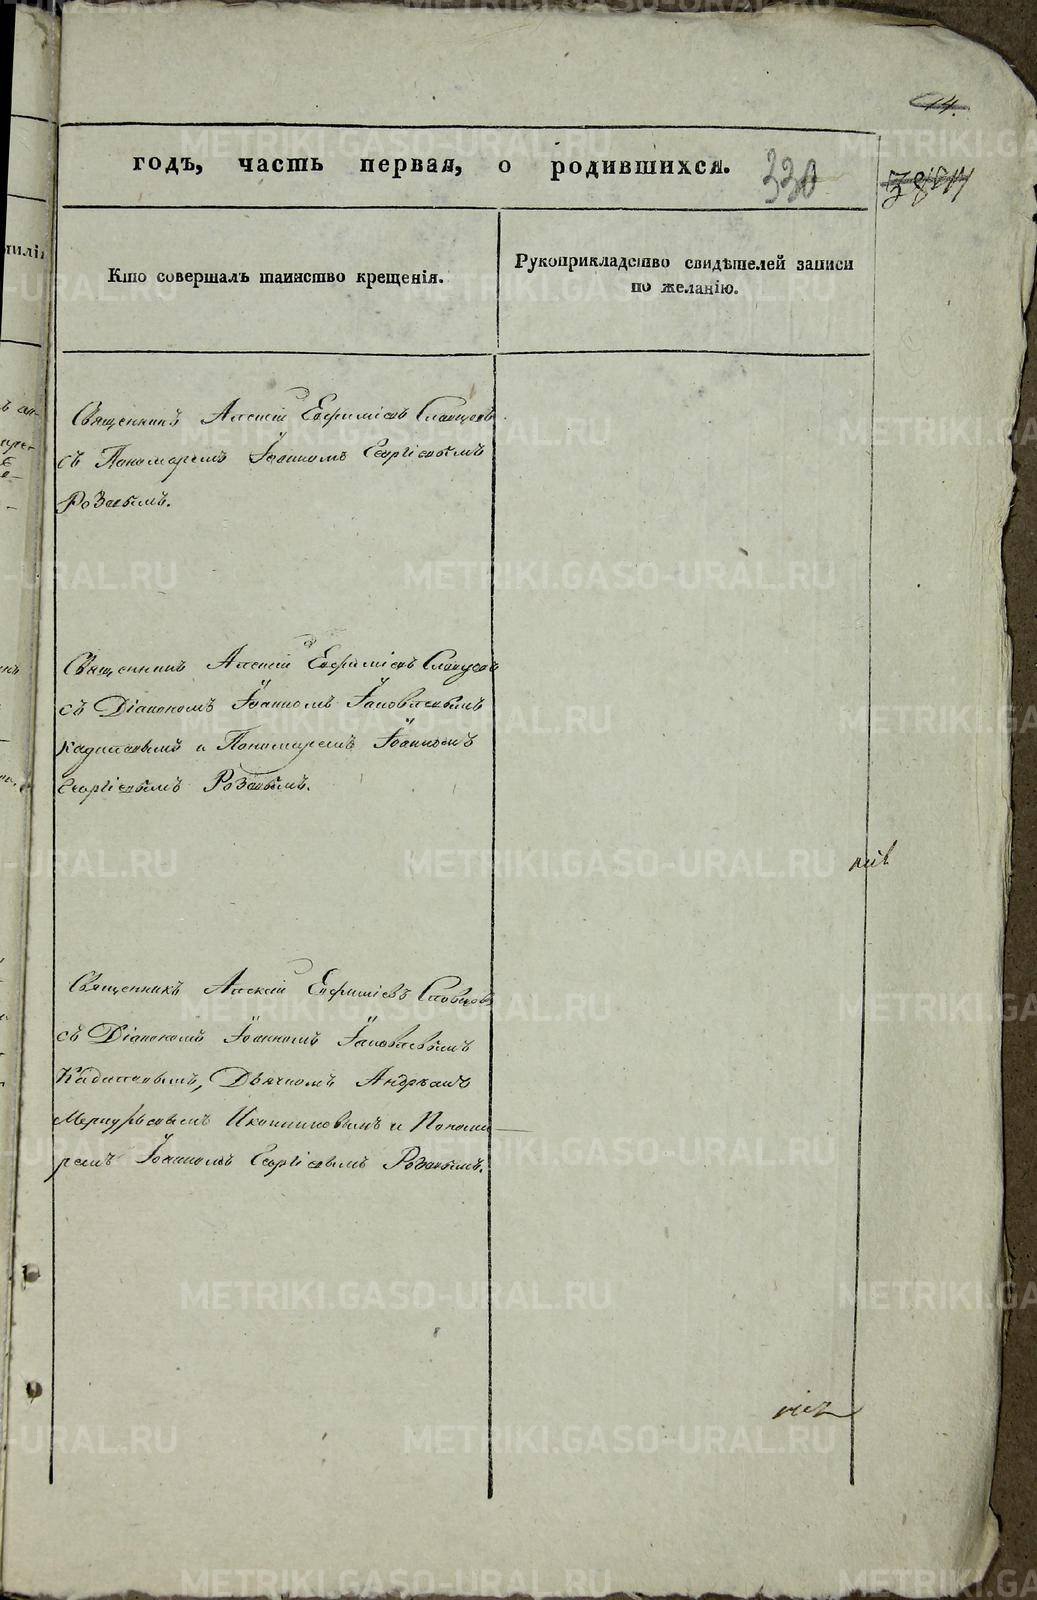 14.
годъ, часть первая, о родившихся. 330
Кто совершалъ таинство крещенія.
Рукоприкладство свидѣтелей записи
по желанію.
Священникъ Алексій Евфиміевъ Словцовъ
съ Пономаремъ Іоанномъ Георгіевымъ
Розовымъ.
Священникъ Алексій Евфиміевъ Словцовъ
съ Діакономъ Іоанномъ Іаковлевымъ
Кадиловымъ и Пономаремъ Іоанномъ
Георгіевымъ Розовымъ.
Священникъ Алексій Евфиміевъ Словцовъ
съ Діакономъ Іоанномъ Іаковлевымъ
Кадиловымъ, Дьячкомъ Андреемъ
Меркурьевымъ Иконниковымъ и Понома-
ремъ Іоанномъ Георгіевымъ Розовымъ.
METRIKI.GASO-URAL.RU